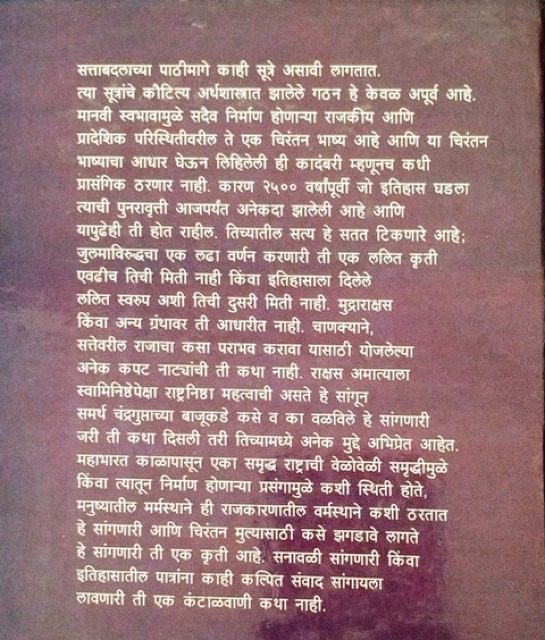 सत्ताबदलाच्या पाठीमागे काही सूत्रे असावी लागतात.
त्या सूत्रांचे कौटिल्य अर्थशास्त्रात झालेले गठन हे केवळ अपूर्व आहे.
मानवी स्वभावामुळे सदैव निर्माण होणाऱ्या राजकीय आणि
प्रादेशिक परिस्थितीवरील ते एक चिरंतन भाष्य आहे आणि या चिरंतन
भाष्याचा आधार घेऊन लिहिलेली ही कादंबरी म्हणूनच कधी
प्रासंगिक ठरणार नाही. कारण २५०० वर्षांपूर्वी जो इतिहास घडला
त्याची पुनरावृत्ती आजपर्यंत अनेकदा झालेली आहे आणि
यापुढेही ती होत राहील. तिच्यातील सत्य हे सतत टिकणारे आहे;
जुलमाविरुद्धचा एक लढा वर्णन करणारी ती एक ललित कृती
एवढीच तिची मिती नाही किंवा इतिहासाला दिलेले
ललित स्वरुप अशी तिची दुसरी मिती नाही. मुद्राराक्षस
किंवा अन्य ग्रंथावर ती आधारीत नाही. चाणक्याने,
सत्तेवरील राजाचा कसा पराभव करावा यासाठी योजलेल्या
अनेक कपट नाट्यांची ती कथा नाही. राक्षस अमात्याला
स्वामिनिष्ठेपेक्षा राष्ट्रनिष्ठा महत्वाची असते हे सांगून
समर्थ चंद्रगुप्ताच्या बाजूकडे कसे व का वळविले हे सांगणारी
जरी ती कथा दिसली तरी तिच्यामध्ये अनेक मुद्दे अभिप्रेत आहेत.
महाभारत काळापासून एका समृद्ध राष्ट्राची वेळोवेळी समृद्धीमुळे
किंवा त्यातून निर्माण होणाऱ्या प्रसंगामुळे कशी स्थिती होते,
मनुष्यातील मर्मस्थाने ही राजकारणातील वर्मस्थाने कशी ठरतात
हे सांगणारी आणि चिरंतन मुल्यासाठी कसे झगडावे लागते
हे सांगणारी ती एक कृती आहे. सनावळी सांगणारी किंवा
इतिहासातील पात्रांना काही कल्पित संवाद सांगायला
लावणारी ती एक कंटाळवाणी कथा नाही.